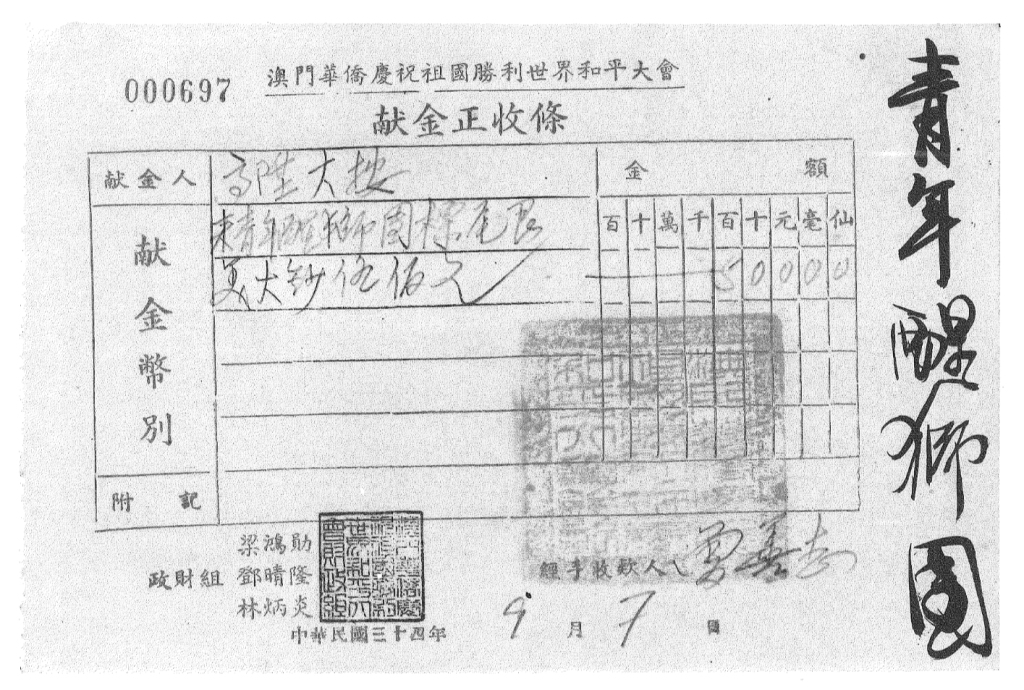 000697
澳門華僑慶祝祖國勝利世界和平大會
献金正收條
献金人 高陞大楼 金額
献金幣別
青年醒獅團
百十萬千百十元毫仙
美大鈔伍佰元 50000
附記
政財組
梁鴻勛
鄧晴隆
林炳炎
經手收欵人
中華民國三十四年 9月7日
青年醒獅團